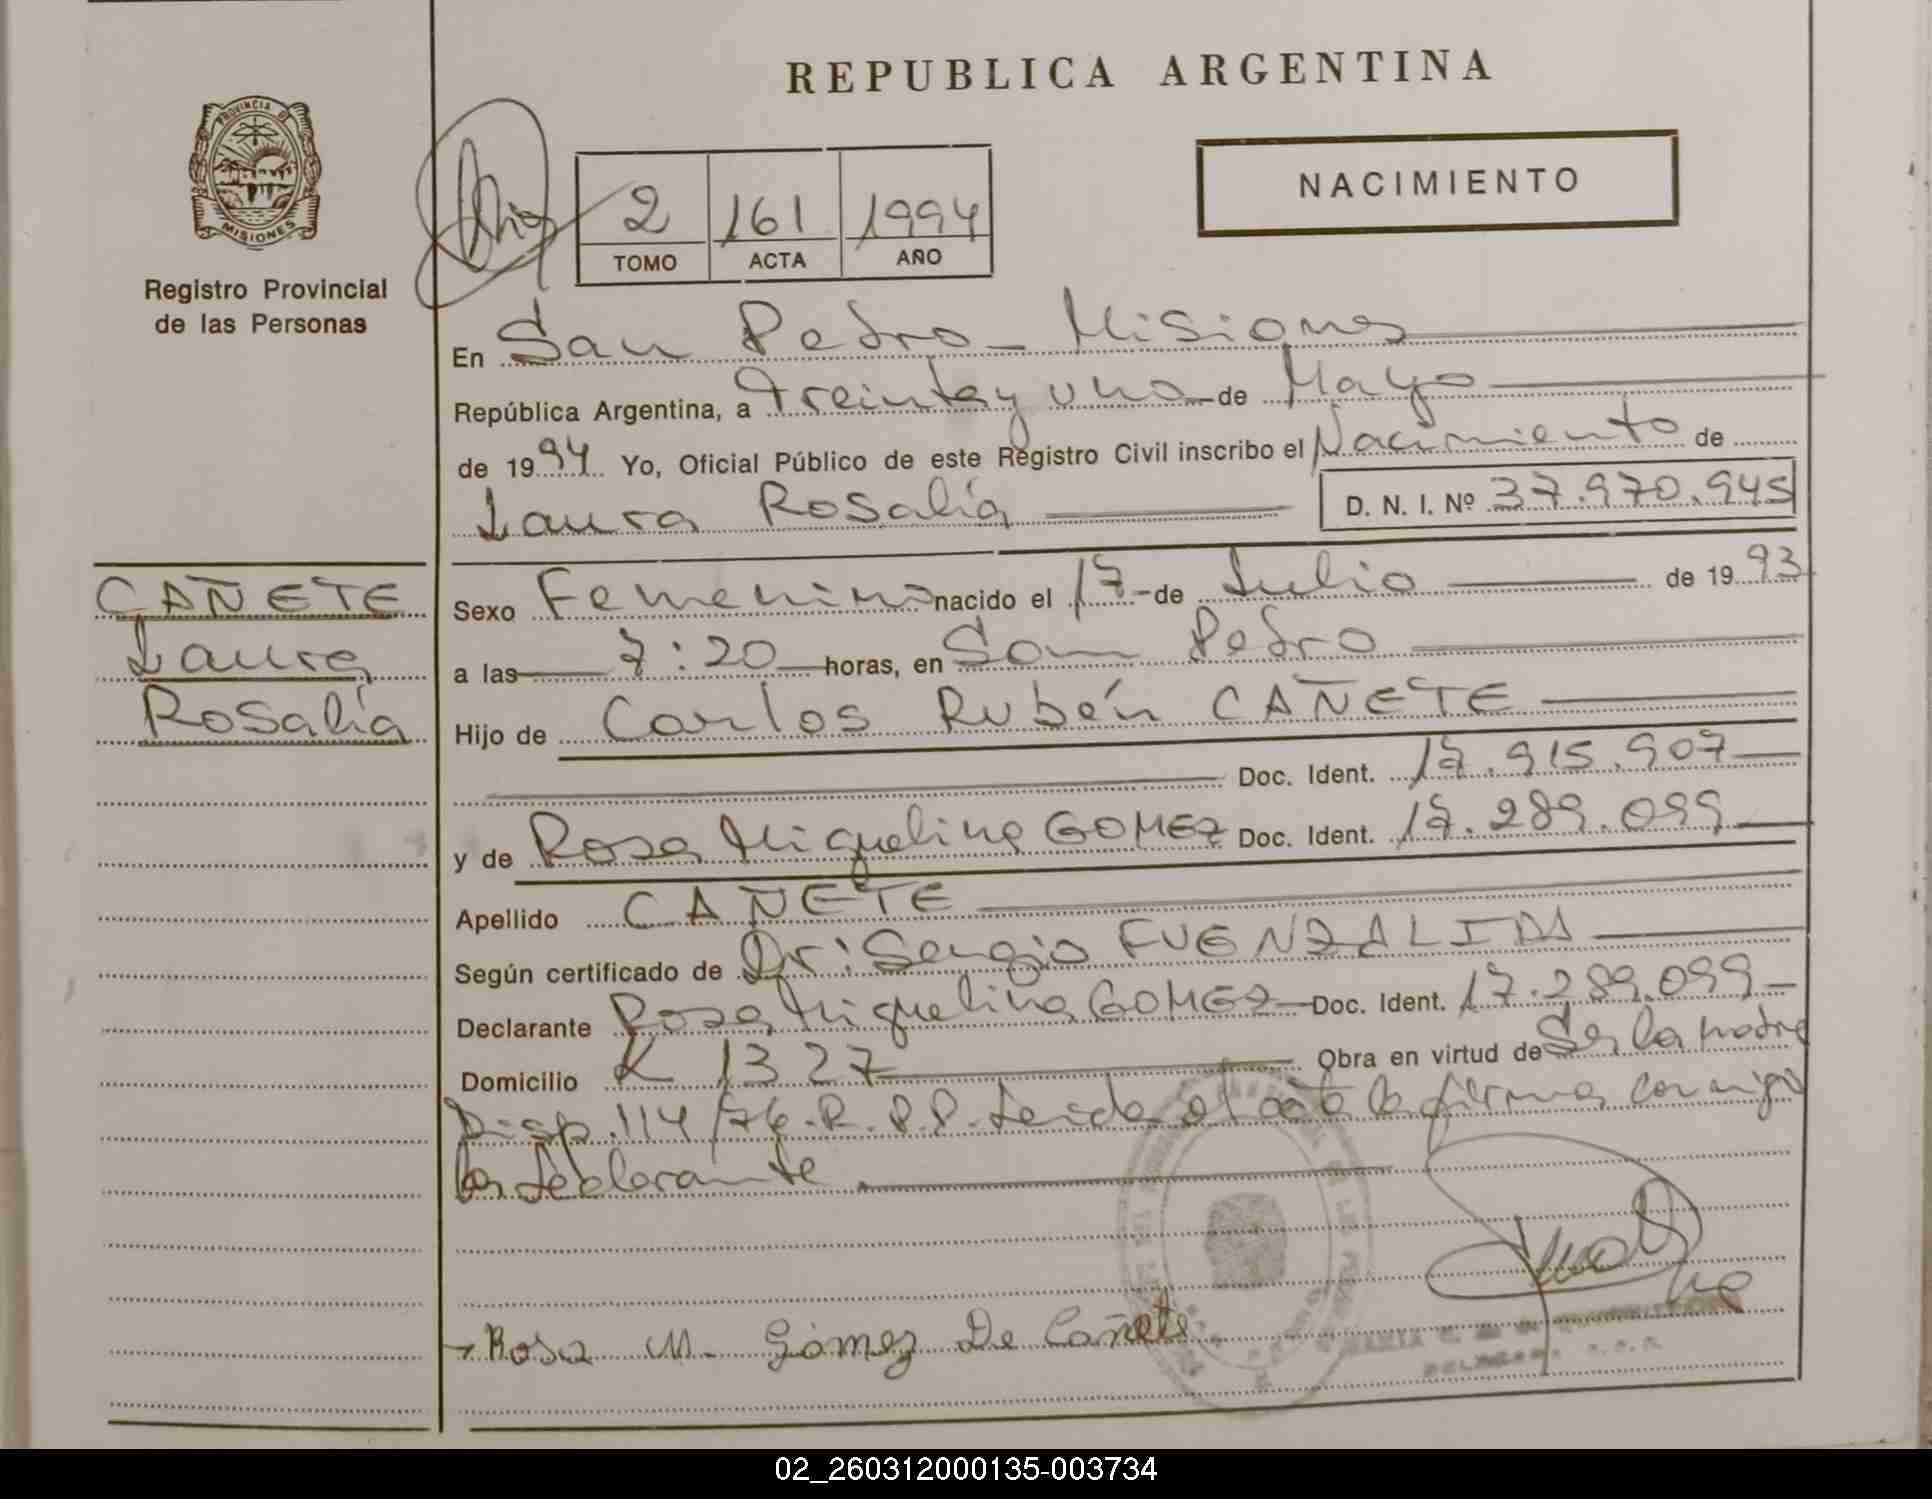 REPUBLICA ARGENTINA
PROVINCIA DE
MISIONES
Registro Provincial
de las Personas
2 161 1994
TOMO ACTA AÑO
NACIMIENTO
En San Pedro - Misiones
República Argentina, a treinta y uno de Mayo
de 1994 Yo, Oficial Público de este Registro Civil inscribo el Nacimiento de
Laura Rosalía D. N. I. Nº 37.970.945
CAÑETE
Laura
Rosalía
Sexo Femenino nacido el 17 de Julio de 1993
a las 7:20 horas, en San Pedro
Hijo de Carlos Rubén CAÑETE
Doc. Ident. 17.915.907
y de Rosa Miguelina GOMEZ Doc. Ident. 17.289.099
Apellido CAÑETE
Según certificado de Dr: Sergio FUENZALIDA
Declarante Rosa Miguelina GOMEZ Doc. Ident. 17.289.099
Domicilio K 1327 Obra en virtud de Ser la madre
Disp. 114/76.R.P.P. Leida el acta la firma conmigo
la declarante
Rosa M. Gómez De Cañete
02_260312000135-003734